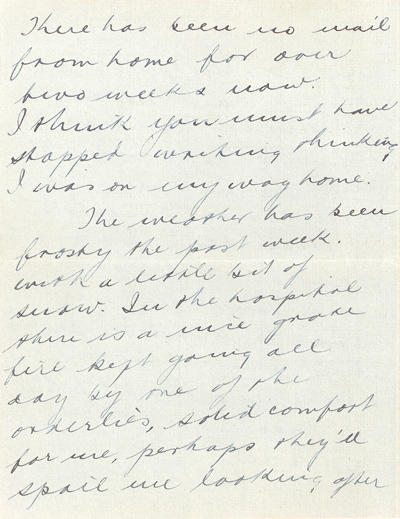 There has been no mail
from home for over
two weeks now.
I think you must have
stopped writing thinking
I was on my way home.
The weather has been
frosty the past week.
with a little bit of
snow. In the hospital
there is a nice grate
fire kept going all
day by one of the
orderlies, solid comfort
for me, perhaps they'll
spoil me looking after